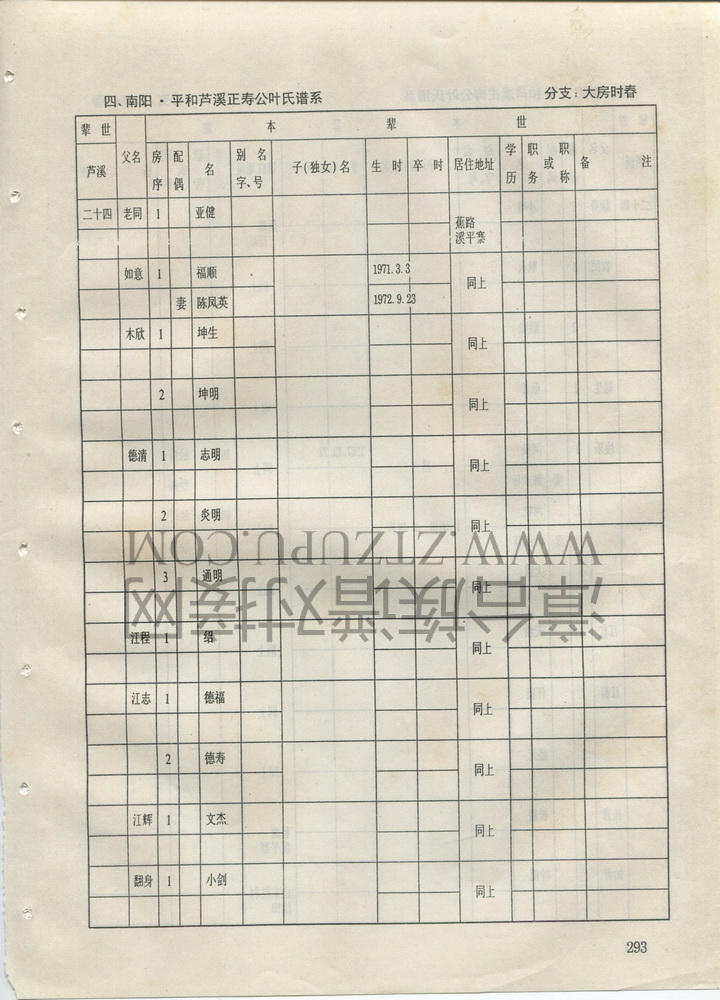 四、南阳·平和芦溪正寿公叶氏谱系 分支：大房时春
辈世 父名 本辈世
芦溪 房序 配偶 名 别名字、号 子(独女)名 生时 卒时 居住地址 学历 职务或职称 备注
二十四 老同 1 亚健 蕉路溪平寨
如意 1 福顺 1971.3.3 同上
妻 陈凤英 1972.9.23
木欣 1 坤生 同上
2 坤明 同上
德清 1 志明 同上
2 炎明 同上
WWW.ZTZUPU.COM
3 通明 同上
漳台族谱对接网
江程 1 绍 同上
江志 1 德福 同上
2 德寿 同上
江辉 1 文杰 同上
翻身 1 小剑 同上
293